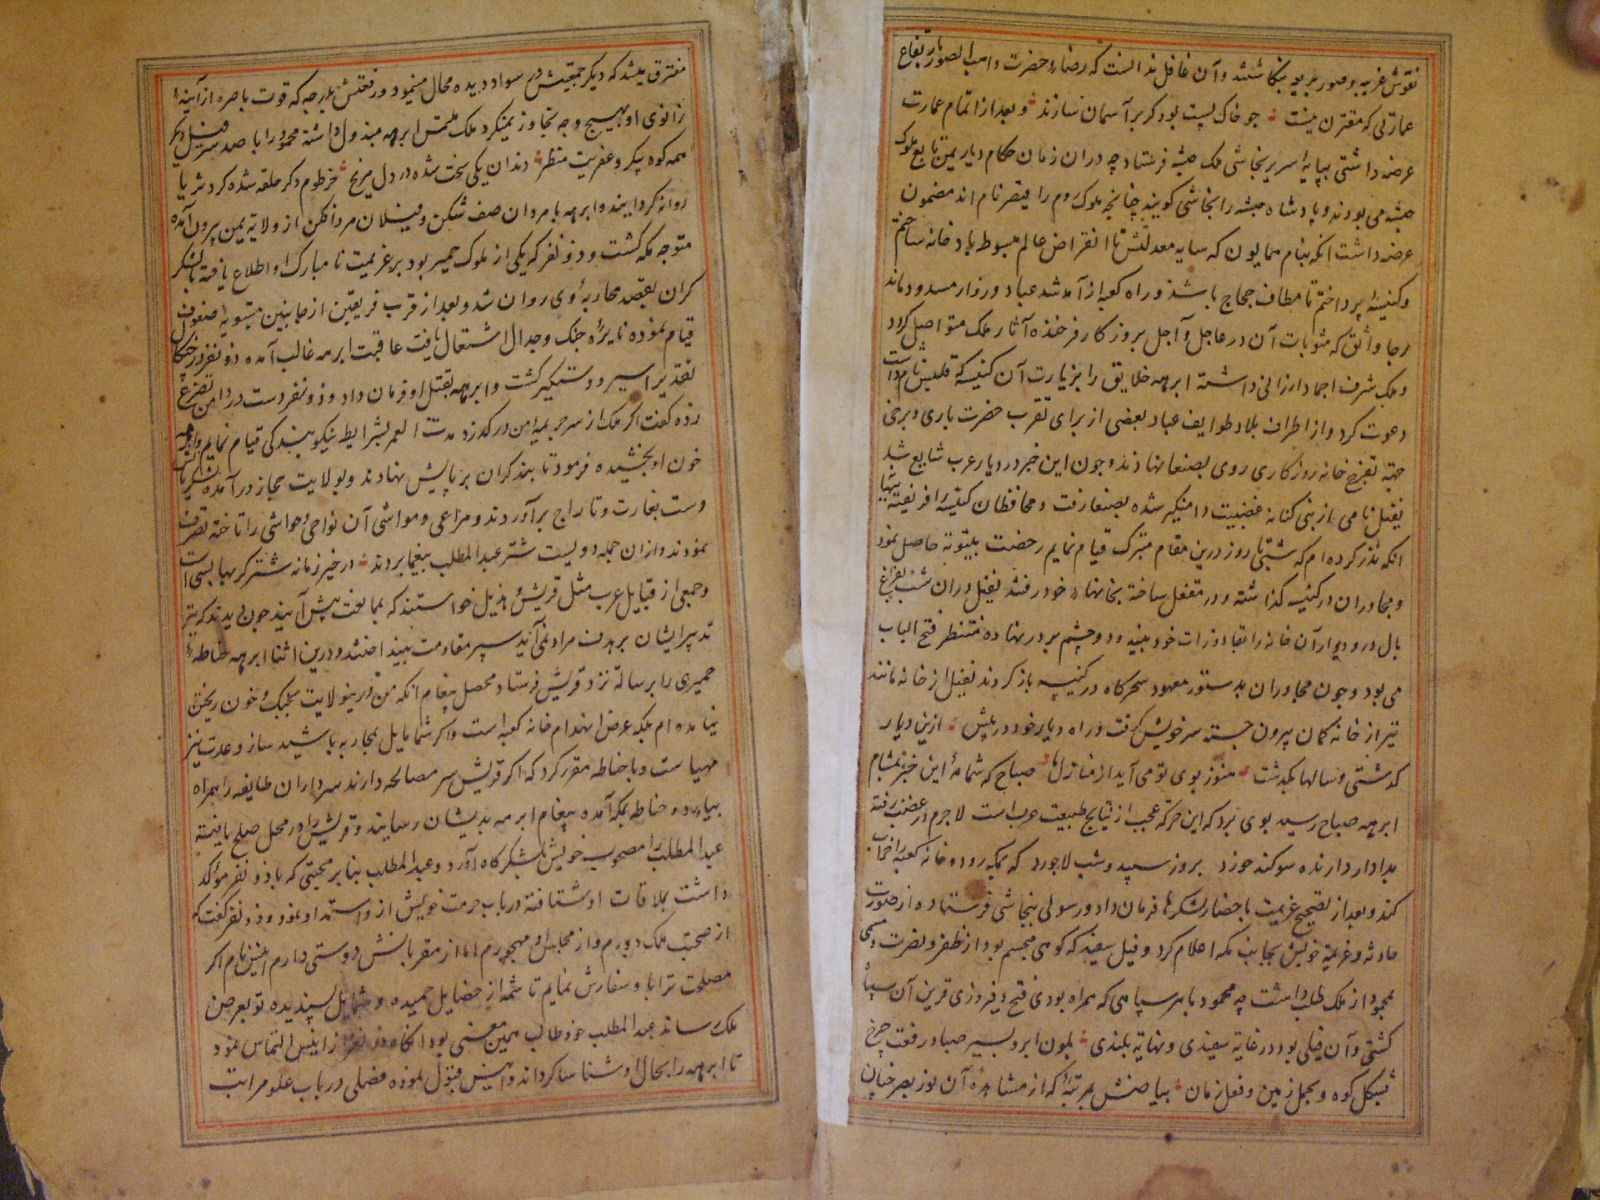 نقوش غریبه و صور بدیعه بنگاشتند و آن غافل ندانست که رضای حضرت واهب الصور بارتفاع
عمارتی که مقترن نیست جو خاک پست بود کر بر آسمان سازند و بعد از اتمام عمارت
عرضه داشتی بپایه سریر نجاشی ملک حبشه فرستاد چه دران زمان حکام دیار یمن تابع ملوک
حبشه می بودند و پادشاه حبشه را نجاشی کویند چنانچه ملوک روم را قیصر نام اند مضمون
عرضه داشت انکه بنام همایون که سایه معدلتش تا انقراض عالم مبسوط باد خانه ساختم
و کنیسه پرداختم تا مطاف حجاج باشد و راه کعبه از آمد شد عباد و زوار مسدود ماند
رجا واثق که مثوبات آن در عاجل و آجل بروزکار فرخنده آثار ملک متواصل کردد
و ملک شرف احماد ارزانی داشته ابرهه خلایق را بزیارت آن کنیسه که قلیس نام داشت
دعوت کرد و از اطراف بلاد طوایف عباد بعضی از برای تقرب حضرت باری و برخی
جهة تفرج خانه روزکاری روی بصنعا نهادند و چون این خبر در دیار عرب شایع شد
نفیل نامی از بنی کنانه عصبیت دامنکیر شده بصنعا رفت و محافظان کنیسه را فریفته
انکه نذر کرده ام که شبی تا روز درین مقام متبرک قیام نمایم رخصت بیتوته حاصل نمود
و مجاوران در کنیسه کذاشته و در مقفل ساخته بخانهاء خود رفتند نفیل دران شب بفراغ
بال در و دیوار آن خانه را بقاذورات خود بیندود و چشم بر در نهاده منتظر فتح الباب
می بود و چون مجاوران بدستور معهود سحرکاه در کنیسه باز کردند نفیل از خانه مانند
تیر از خانه کمان بیرون جسته سر خویش کرفت و راه دیار خود در پیش ازین دیار
کذشتی و سالها بکذشت هنوز بوی تو می آید از منازلها صباح که شمامه این خبر بمشام
ابرهه صباح رسید بوی برد که این حرکة عجب از نتایج طبیعت عرب است لاجرم در غضب رفته
بدادار دارنده سوکند خورد بروز سپید و شب لاجورد که بمکه رود و خانه کعبه را خراب
کند و بعد از تصحیح عزیمت باحضار لشکرها فرمان داد و رسولی بنجاشی فرستاده از صورت
حادثه و عزیمة خویش بجانب مکه اعلام کرد و فیل سفید که کوهی مجسم بود از ظفر و نصرت
محمود از ملک طلب داشت چه محمود با هر سپاهی که همراه بودی فتح و فیروزی قرین آن سپاه
کشتی و آن فیلی بود در غایة سفیدی و نهایة بلندی بلون ابر و بسیر صبا و رفعت چرخ
بشکل کوه و بحمل زمین و فعل زمان بیاضش بمرتبه که از مشاهده آن نور بصر چنان
متفرق میشد که دیکر جمعیتش در سواد دیده محال مینمود و رفعتش بدرجه که قوت باصره از آینه
زانوی او بهیچ وجه تجاوز نمیکرد ملک ملتمس ابرهه مبذول داشته محمود را با صد سر فیل دیکر
همه کوه پیکر و عفریت منظر دندان یکی سخت شده در دل مریخ خرطوم دکر حلقه شده کرد ثریا
روانه کردانیدند و ابرهه با مردان صف شکن و فیلان مرد افکن از ولایة یمن بیرون آمده
متوجه مکه کشت و ذو نفر که یکی از ملوک حمیر بود بر عزیمت نا مبارک او اطلاع یافته با لشکر
کران بقصد محاربه وی روان شد و بعد از قرب فریقین از جانبین بتسویه صفوف
قیام نموده نایره جنک و جدال اشتعال یافت عاقبت ابرهه غالب آمده ذو نفر در چنکال
تقدیر اسیر و دستکیر کشت و ابرهه بقتل او فرمان داد و ذو نفر دست در دامن تضرع
زده کفت اکر ملک از سر جریمه من درکذرد مدت العمر بشرایط نیکو بندکی قیام نمایم و ابرهه
خون او بخشیده فرمود تا بند کران بر پایش نهادند و بولایت حجاز درآمده لشکریانش
دست بغارت و تاراج برآوردند و مراعی و مواشی آن نواحی و حواشی را تاخته تصرف
نمودند و از ان جمله دویست شتر عبدالمطلب بیغما بردند
و جمعی از قبایل عرب مثل قریش و هذیل خواستند که بممانعت پیش آیند چون دیدند که تیر
تدبیر ایشان بر هدف مراد نمی آید سپر مقاومت بینداختند و درین اثنا ابرهه حناطه
حمیری را برسالة نزد قریش فرستاد محصل پیغام انکه من درین ولایت بجنک و خون ریختن
نیامده ام بلکه غرض انهدام خانه کعبه است و اکر شما مایل بمحاربه باشید ساز و عدت نیز
مهیا ست و با حناطه مقرر کرد که اکر قریش سر مصالحه دارند سرداران طایفه را همراه
بیاورد و حناطه بمکه آمده پیغام ابرهه بدیشان رسانید و قریش را در محل صلح یافته
عبدالمطلب را مصحوب خویش بلشکرکاه آورد و عبدالمطلب بنابر محبتی که با ذو نفر مؤکد
داشت بملاقات او شتافته در باب حرمت خویش از و استمداد نمود و ذو نفر کفت که
از صحبت ملک دورم و از مجالس او مهجورم اما از مقربانش دوستی دارم انیس نام اکر
مصلحت ترا باو سفارش نمایم تا شمه از خصایل حمیده و شمایل پسندیده تو بعرض
ملک رساند عبدالمطلب خود طالب همین معنی بود انکاه ذو نفر از انیس التماس نمود
تا ابرهه را بحال او شناسا کرداند و انیس قبول نموده فصلی در باب علو مراتب